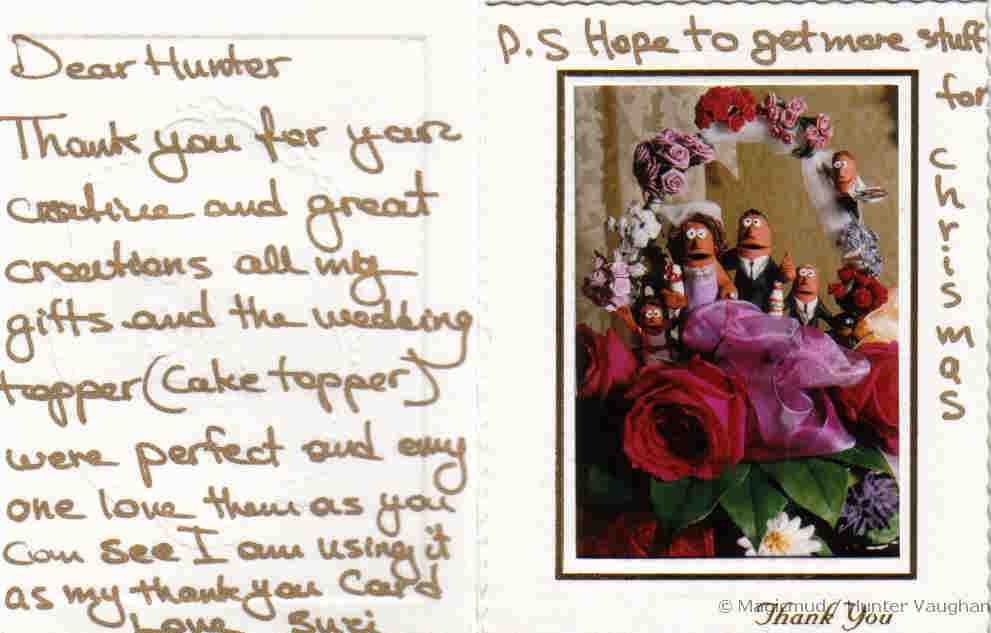 Dear Hunter
Thank you for your
creative and great
creations all my
gifts and the wedding
topper (Cake topper)
were perfect and eny
one love them as you
can see I am using it
as my thank you Card
Love Suzi
P.S Hope to get more stuff
for
chrismas
Thank You
© Magicmud / Hunter Vaughan